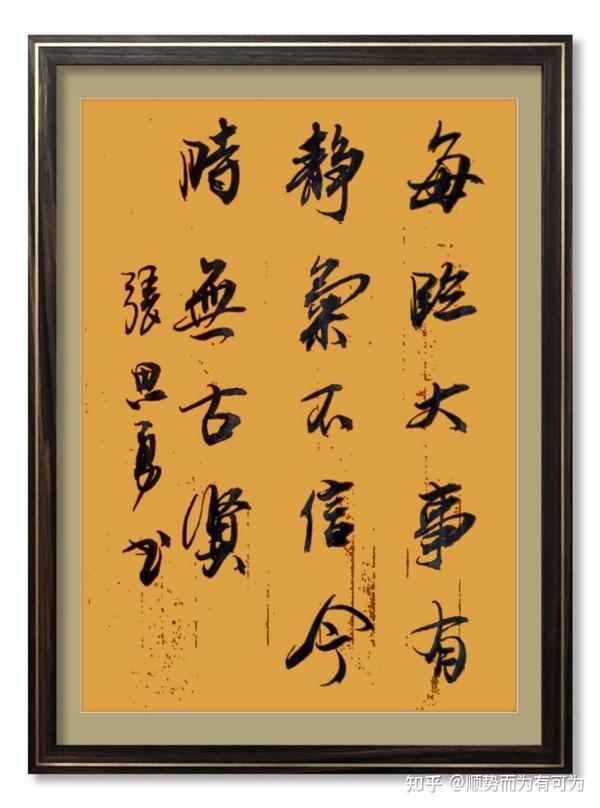 每臨大事有
靜氣不信今
時無古賢
張思勇书
知乎 @顺势而为有可为